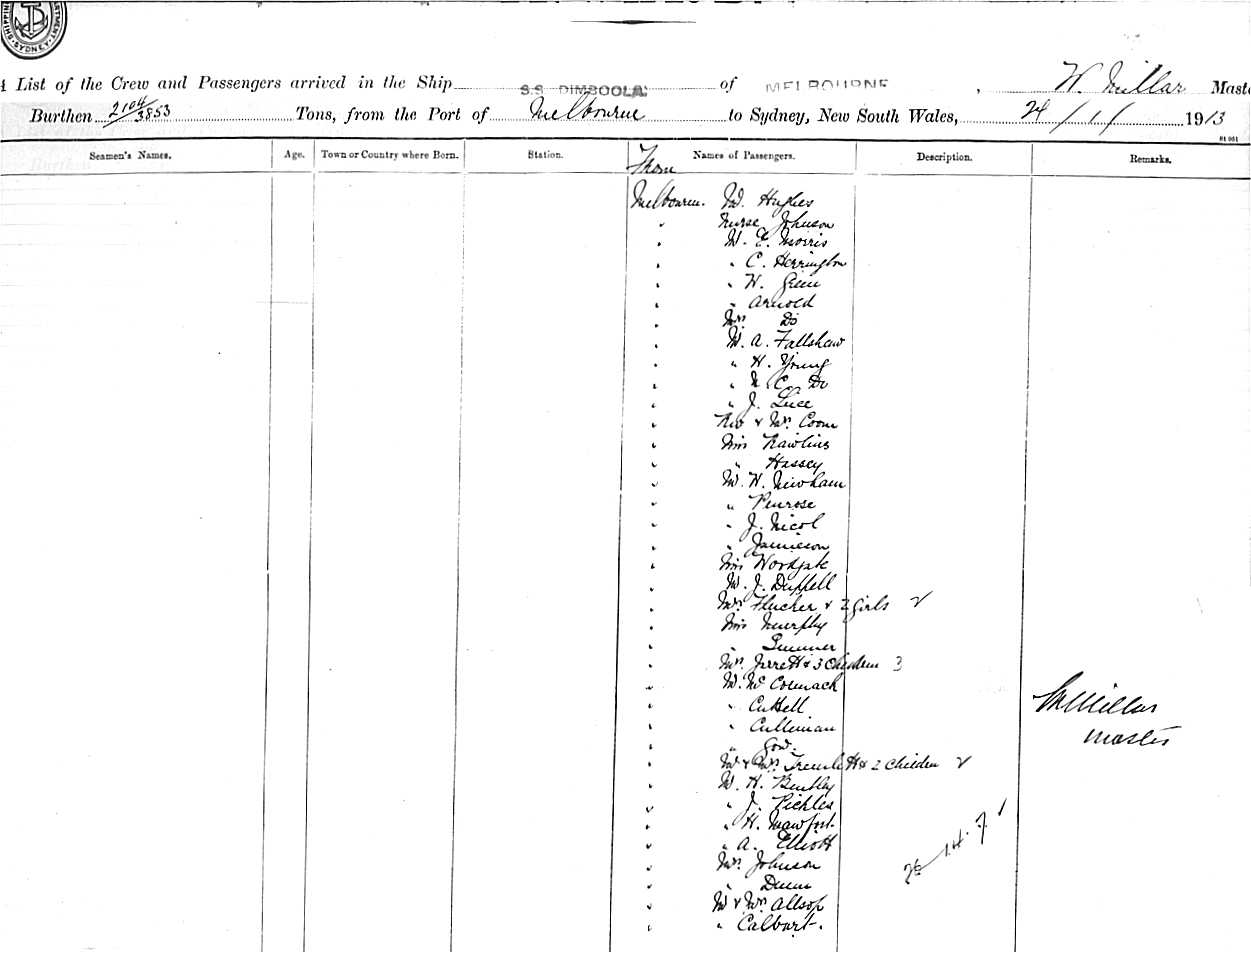 SYDNEY
List of the Crew and Passengers arrived in the Ship S.S. DIMBOOLA of MELBOURNE, W. Millar Maste
Burthen 2104/3853 Tons, from the Port of Melbourne to Sydney, New South Wales, 24/1/1913
Seamen's Names. Age. Town or Country where Born. Station. Names of Passengers. Description. Remarks.
From
Melbourne. Mr. Hughes
" Nurse Johnson
" Mr. E. Morris
" " C. Herrington
" " W. Green
" " Arnold
" Mrs Do
" Mr. A. Fallshaw
" " H. Young
" " C. Do
" " J. Luce
" Rev & Mrs Coom
" Miss Rawlins
" " Hassey
" Mr. W. Newham
" " Penrose
" " J. Nicol
" " Jamieson
" Miss Woodgate
" Mr. J. Duffell
" Mrs Flucher & 2 girls 2
" Miss Murphy
" "
" Mrs. Jrrett & 3 Children 3
" Mr. McCormack
" " Cuttell
" " Culliman
" " Gow.
" Mr & Mrs Tremlett & 2 Childen 2
" Mr. H. Bentley
" " J. Pickles
" " H. Mawfort.
" " A. Elliott
" Mrs. Johnson
" " Dunn
" Mr & Mrs Allsop
" " Calvart.
W Millar
Master
26 14. 7